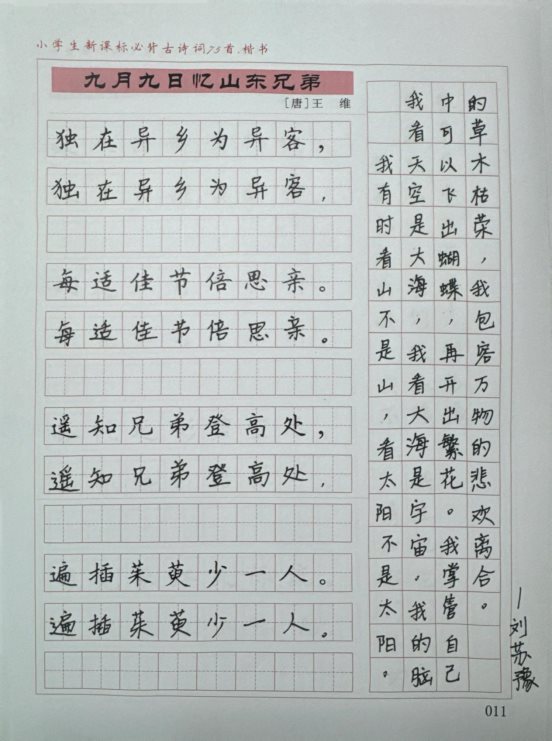 小学生新课标必背古诗词75首.楷书
九月九日忆山东兄弟
[唐]王 维
独在异乡为异客，
独在异乡为异客，
每适佳节倍思亲。
每适佳节倍思亲。
遥知兄弟登高处，
遥知兄弟登高处，
遍插茱萸少一人。
遍插茱萸少一人。
我有时看山不是山，看太阳不是太阳。
我看天空是大海，我看大海是宇宙，我的脑
中可以飞出蝴蝶，再开出繁花。我掌管自己
的草木枯荣，我包容万物的悲欢离合。
—刘苏豫
011